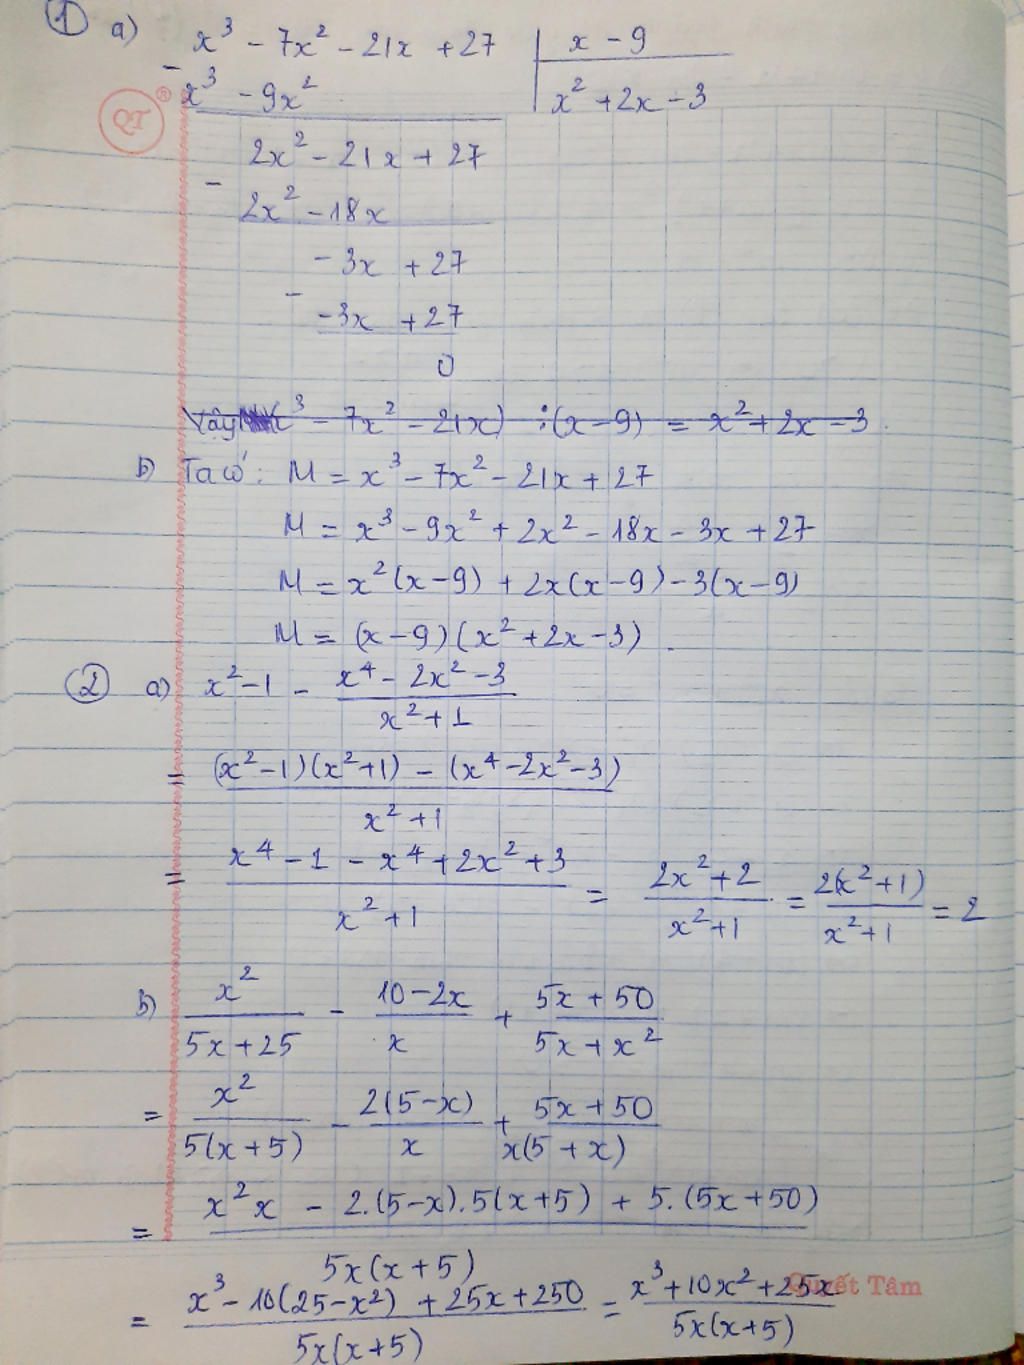 ① a) x³ - 7x² - 21x + 27 | x - 9
- x³ - 9x² | x² + 2x - 3
QT ®
2x² - 21x + 27
- 2x² - 18x
- 3x + 27
- -3x + 27
0
Vậy x³ - 7x² - 21x) : (x - 9) = x² + 2x - 3.
b) Ta có: M = x³ - 7x² - 21x + 27
M = x³ - 9x² + 2x² - 18x - 3x + 27
M = x²(x - 9) + 2x(x - 9) - 3(x - 9)
M = (x - 9)(x² + 2x - 3).
② a) x² - 1 - (x⁴ - 2x² - 3)/(x² + 1)
= ((x² - 1)(x² + 1) - (x⁴ - 2x² - 3))/(x² + 1)
= (x⁴ - 1 - x⁴ + 2x² + 3)/(x² + 1) = (2x² + 2)/(x² + 1) = 2(x² + 1)/(x² + 1) = 2
b) x²/(5x + 25) - (10 - 2x)/x + (5x + 50)/(5x + x²)
= x²/(5(x + 5)) - 2(5 - x)/x + (5x + 50)/(x(5 + x))
= (x²x - 2.(5 - x).5(x + 5) + 5.(5x + 50))/(5x(x + 5))
= (x³ - 10(25 - x²) + 25x + 250)/(5x(x + 5)) = (x³ + 10x² + 25x)/(5x(x + 5))
Quyết Tâm